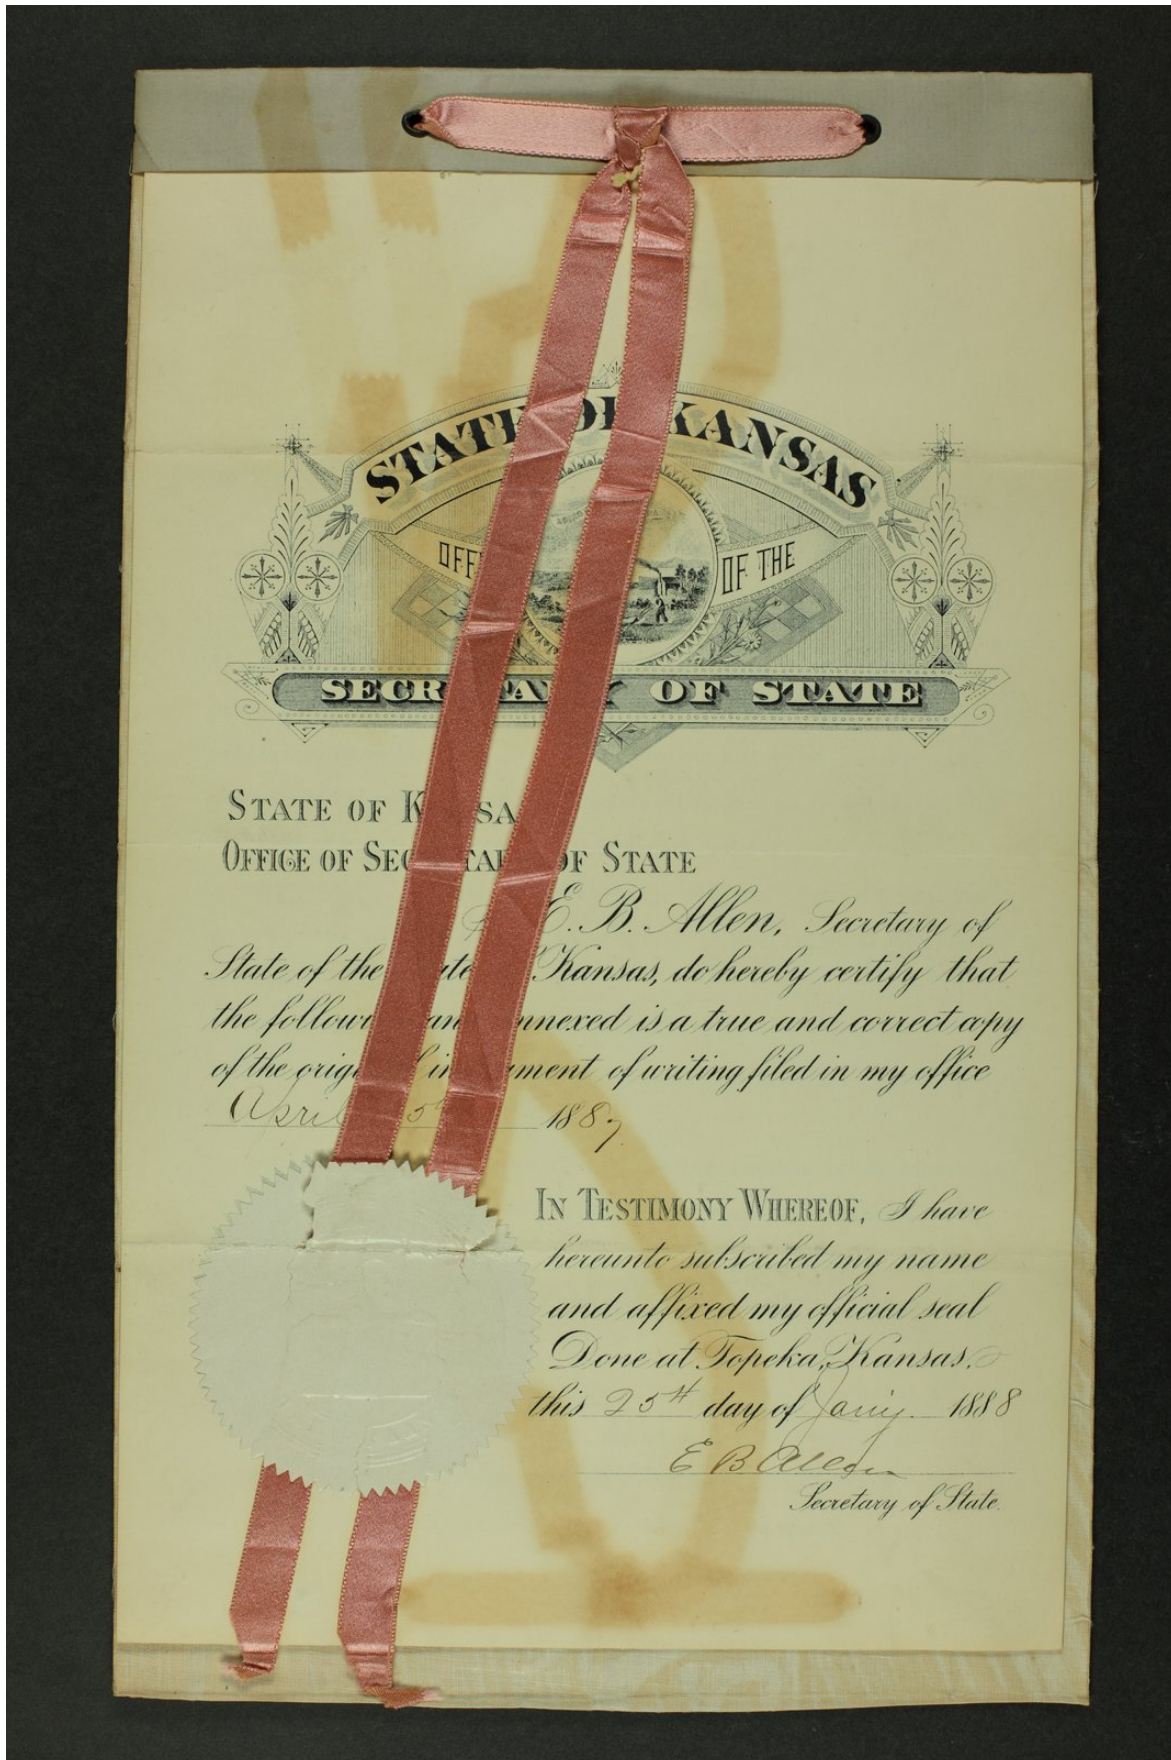 STATE OF KANSAS
OFFICE OF THE
SECRETARY OF STATE
STATE OF KANSAS
OFFICE OF SECRETARY OF STATE
E. B. Allen, Secretary of
State of the State of Kansas, do hereby certify that
the following and annexed is a true and correct copy
of the original instrument of writing filed in my office
April 5 1887
IN TESTIMONY WHEREOF, I have
hereunto subscribed my name
and affixed my official seal
Done at Topeka, Kansas,
this 25th day of Jany. 1888
E B Allen
Secretary of State.